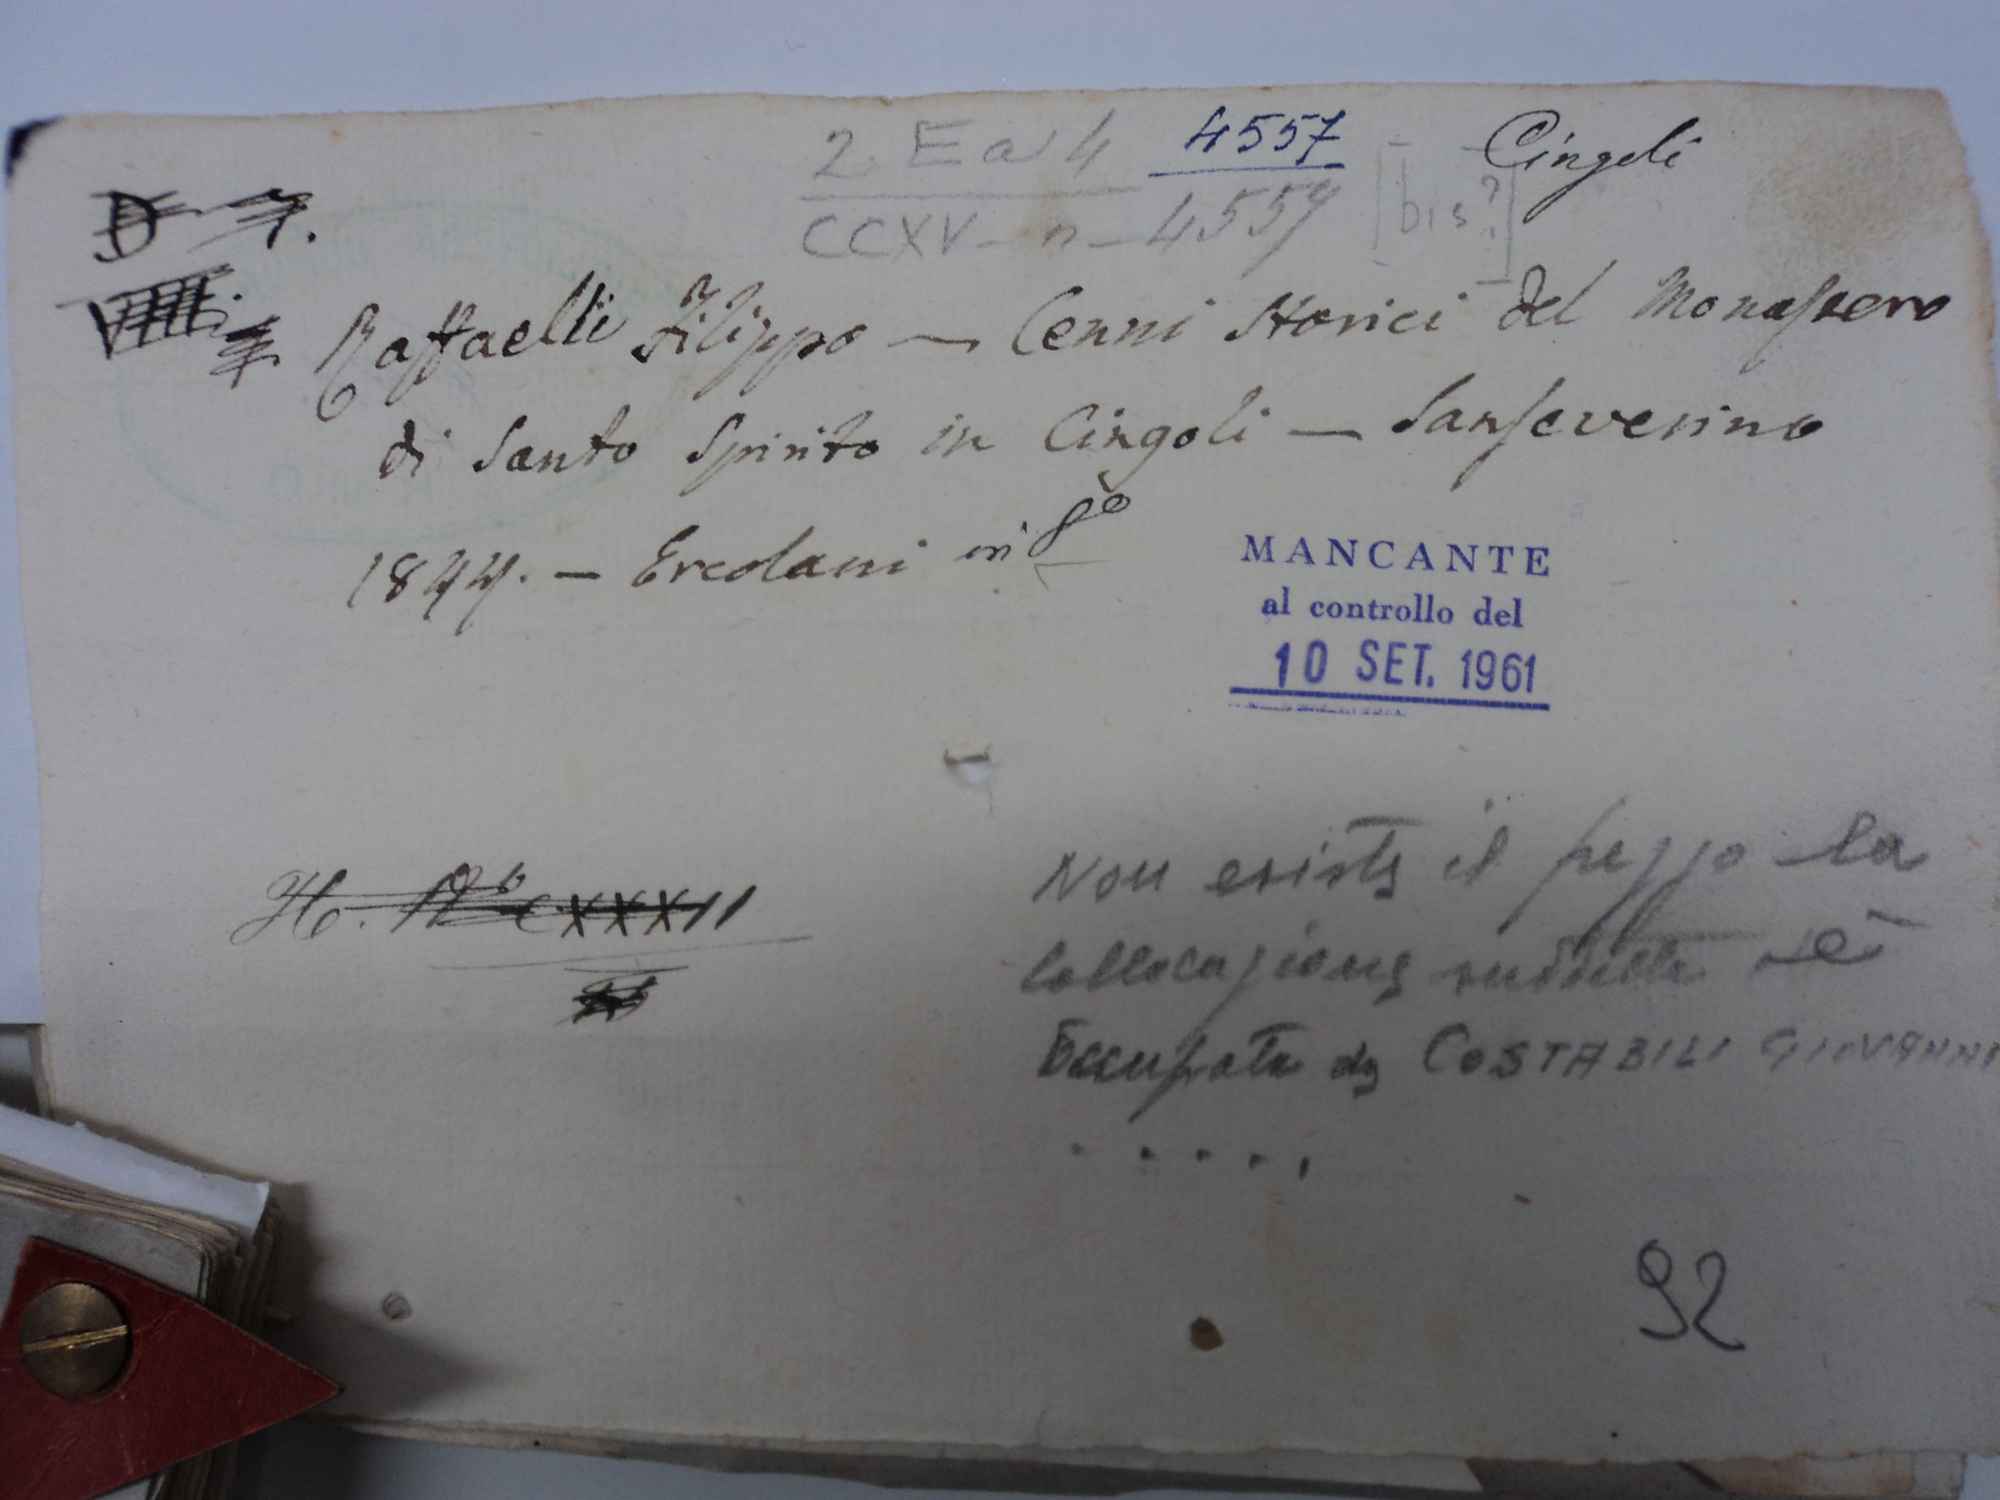 2 Ea 4 4557 Cingoli
CCXV - n - 4559 [bis?]
D - 7.
Raffaelli Filippo — Cenni Storici del Monastero
di Santo Spirito in Cingoli — Sanseverino
1844. — Ercolani in 8º
MANCANTE
al controllo del
10 SET. 1961
H. Nº CXXXII
Non esiste il pezzo la
collocazione suddetta è
occupata da COSTABILI GIOVANNI
. . . . .
92